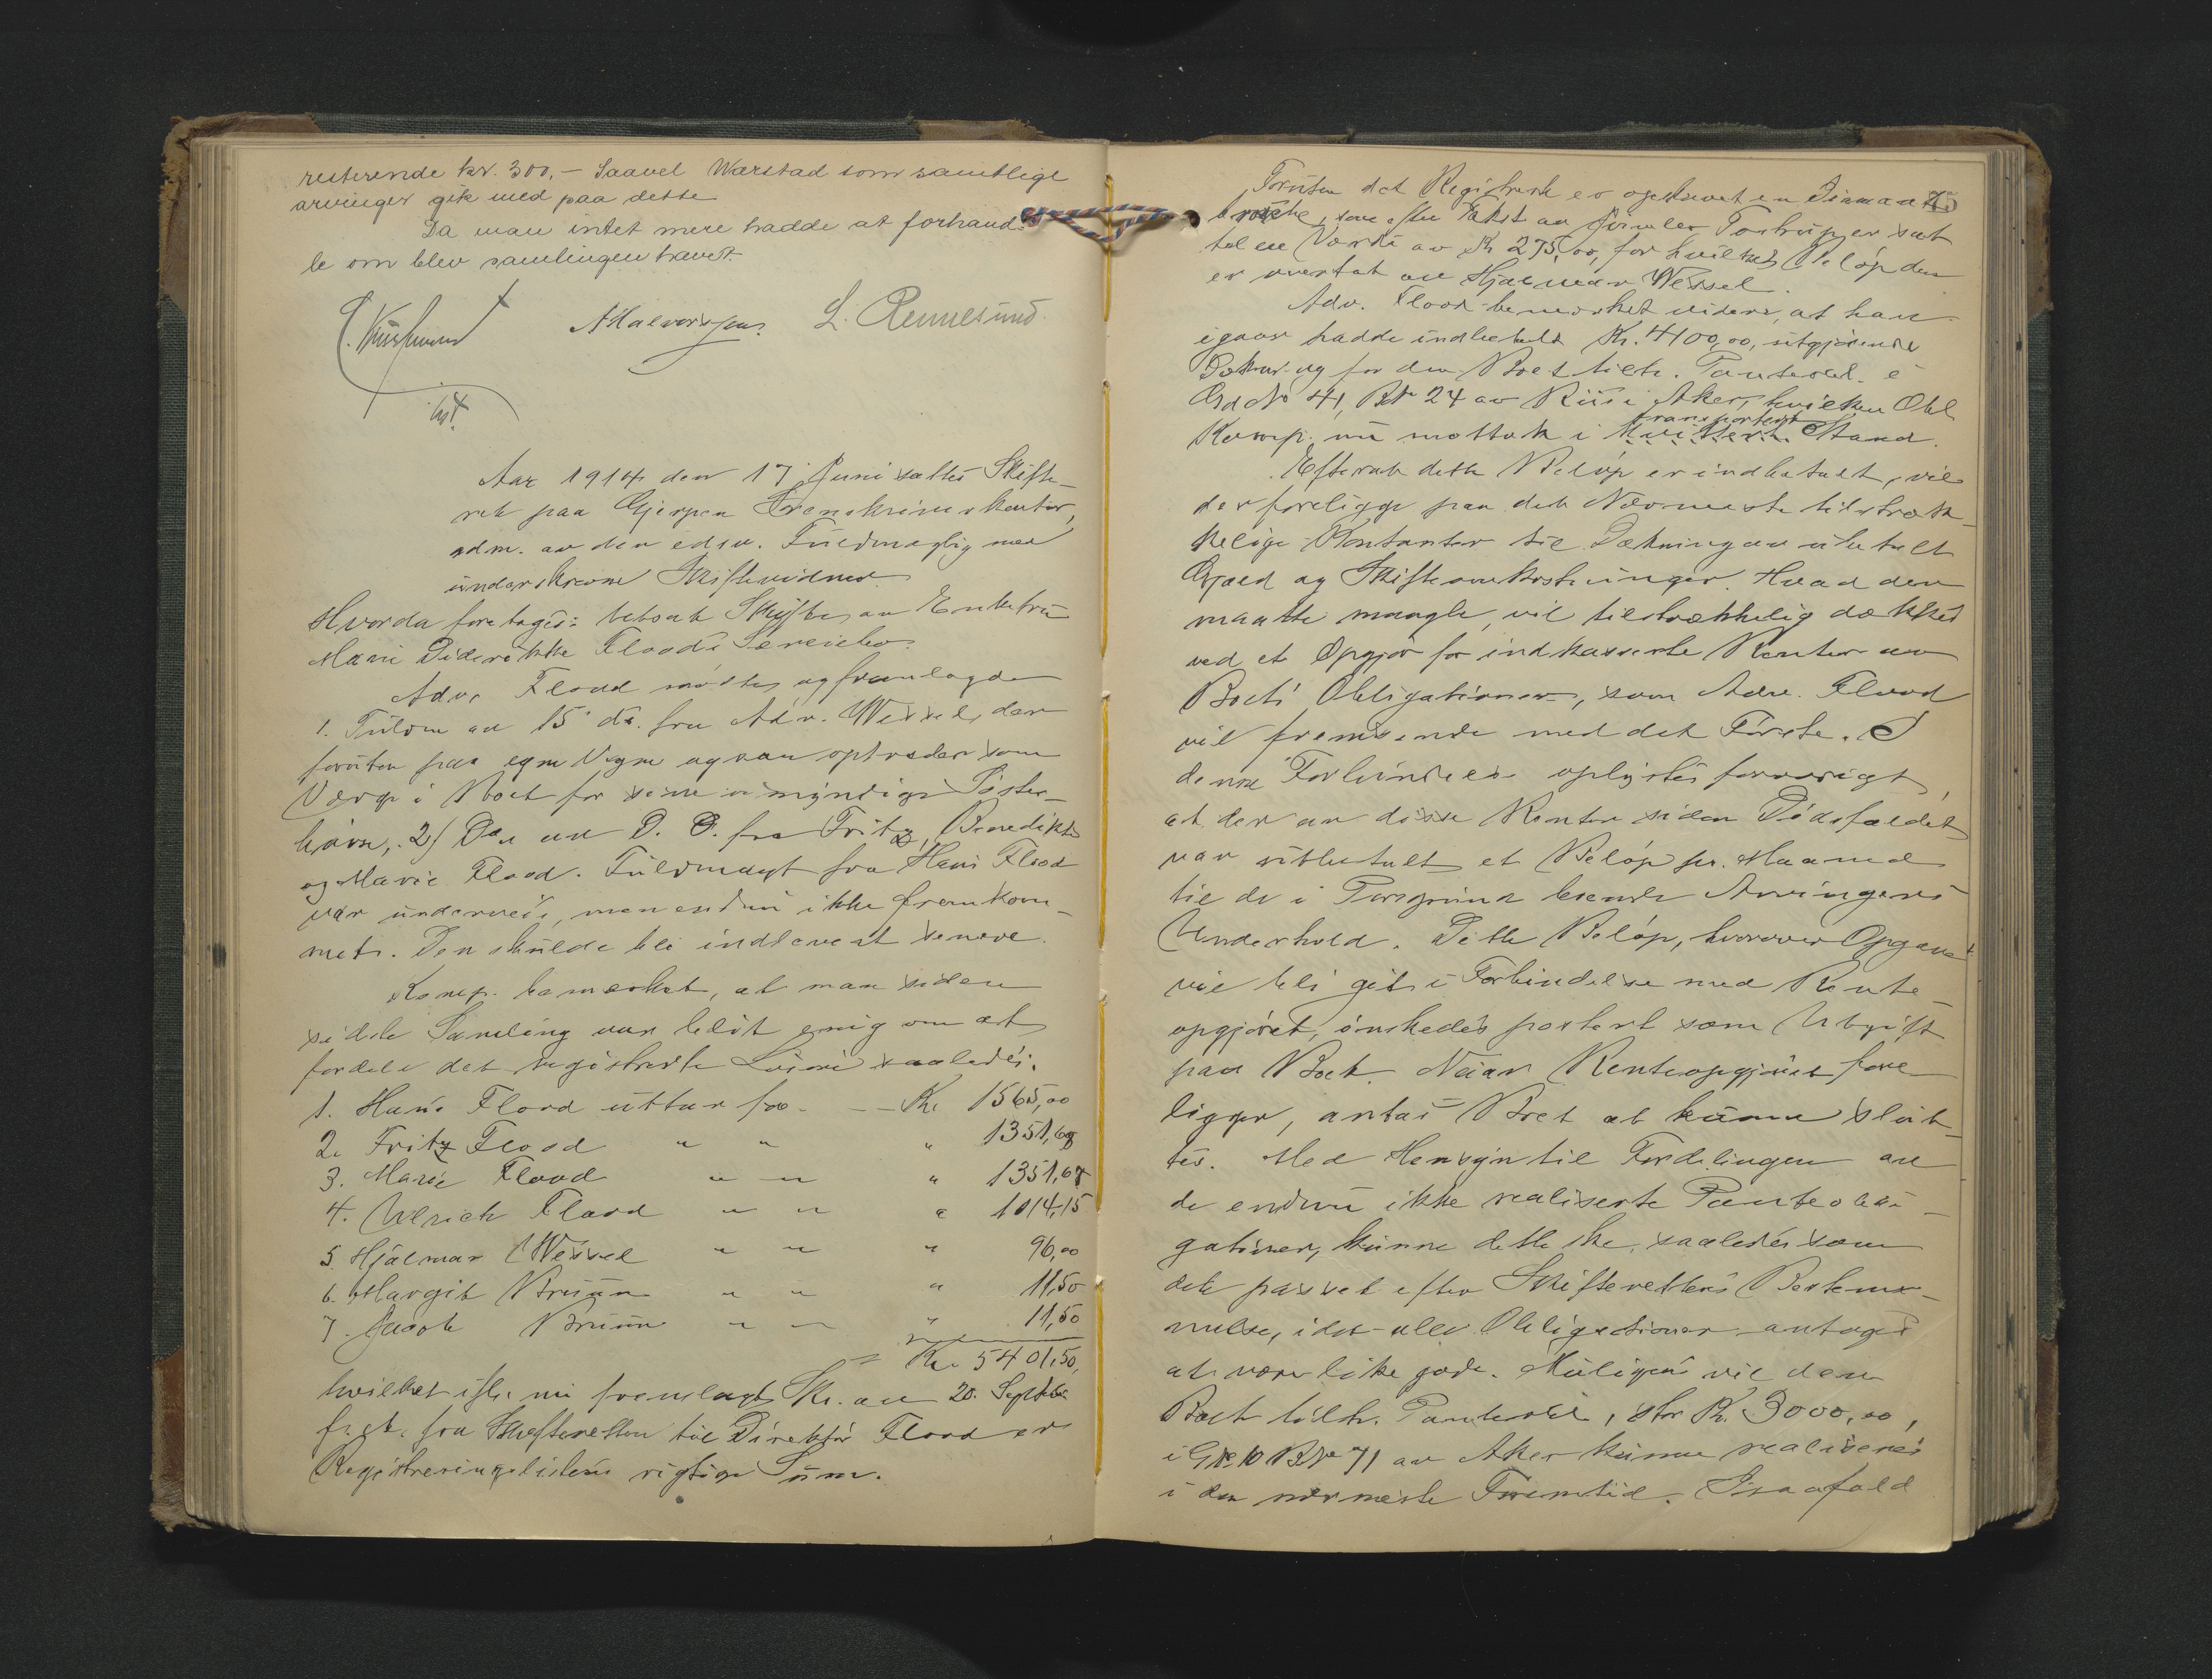 resterende kr. 300,- Saavel Warstad som samtlige
arvinger gik med paa dette
Da man intet mere hadde at forhand-
le om blev samlingen hævet.
A Halvorsen. L. Rennesund.
Aar 1914 den 17 Juni sattes Skifte-
ret paa Gjerpen Sorenskriverkontor,
adm. av den edsv. Fuldmægtig med
underskrevne Skiftevidner
Hvorda foretages: betsat Skifte av Enkefru
Marie Diderikke Flood's
Adv. Flood mødte og fremlagde
1. Fuldm av 15 ds. fra Adv. Wessel, der
foruten paa egne Vegne ogsaa optræder som
Værge i Boet for sine umyndige Søster-
børn, 2) Do av D. D. fra Fritz, Benedikte
og Marie Flood. Fuldmagt fra Hans Flood
var underveis, men endnu ikke fremkom-
met. Den skulde bli indleveret senere.
Komp. bemerket, at man siden
sidste Samling var blit enig om at
fordele det registrerte Løsøre saaledes:
1. Hans Flood uttar for - - Kr. 1565,00
2. Fritz Flood " " " 1351,68
3. Marie Flood " " " 1351,67
4. Ulrich Flood " " " 1014,15
5. Hjalmar Wessel " " " 96,00
6. Margit Bruun " " " 11,50
7. Jacob Bruun " " " 11,50
= Kr. 5401,50,
hvilket ifl. nu fremlagt Skr. av 20. Septbr
f. A. fra Skifteretten til Direktør Flood er
Registreringslistens rigtige Sum.
75
Foruten det Registrerte er opskrevet en Diamant-
broche, som efter Takst av Juveler Tostrup er sat
til en Værdi av Kr 275,00, for hvilket Beløp den
er overtat av Hjalmar Wessel.
Adv. Flood bemerket videre, at han
igaar hadde indbetalt Kr. 4100,00, utgjørende
for den Boet tilh. Panteobl. i
Grd No 41, Bno 24 av Riis i Aker, hvilken Obl
transportert
Komp. nu mottok i Stand.
Efterat dette Beløp er indbetalt, vil
der foreligge paa det Nærmeste tilstræk-
kelige Kontanter til Dækning av ubetalt
Gjæld og Skifteomkostninger. Hvad der
maatte mangle, vil tilstrækkelig dækkes
ved et Opgjør for indkasserte Renter av
Boets Obligationer, som Adv. Flood
vil fremsende med det Første. I
denne Forbindelse oplystes forøvrigt,
at der av disse Renter siden Dødsfaldet
var utbetalt et Beløp pr. Maaned
til de i Porsgrund boende Arvingers
Underhold. Dette Beløp, hvorover Opgave
vil bli git i Forbindelse med Rente-
opgjøret, ønskedes postert som Utgift
paa Boet. Naar Renteopgjøret fore-
ligger, antas Boet at kunne slut-
tes. Med Hensyn til Fordelingen av
de endnu ikke realiserte Panteobli-
gationer, kunne dette ske, saaledes som
det passet efter Skifterettens Bestem-
melse, idet alle Obligationer antoges
at være like gode. Muligens vil den
Boet tilh. Panteobl., stor Kr. 3000,00,
i Gno 10 Bno 71 av Aker kunne realiseres
i den nærmeste Fremtid. Isaafald